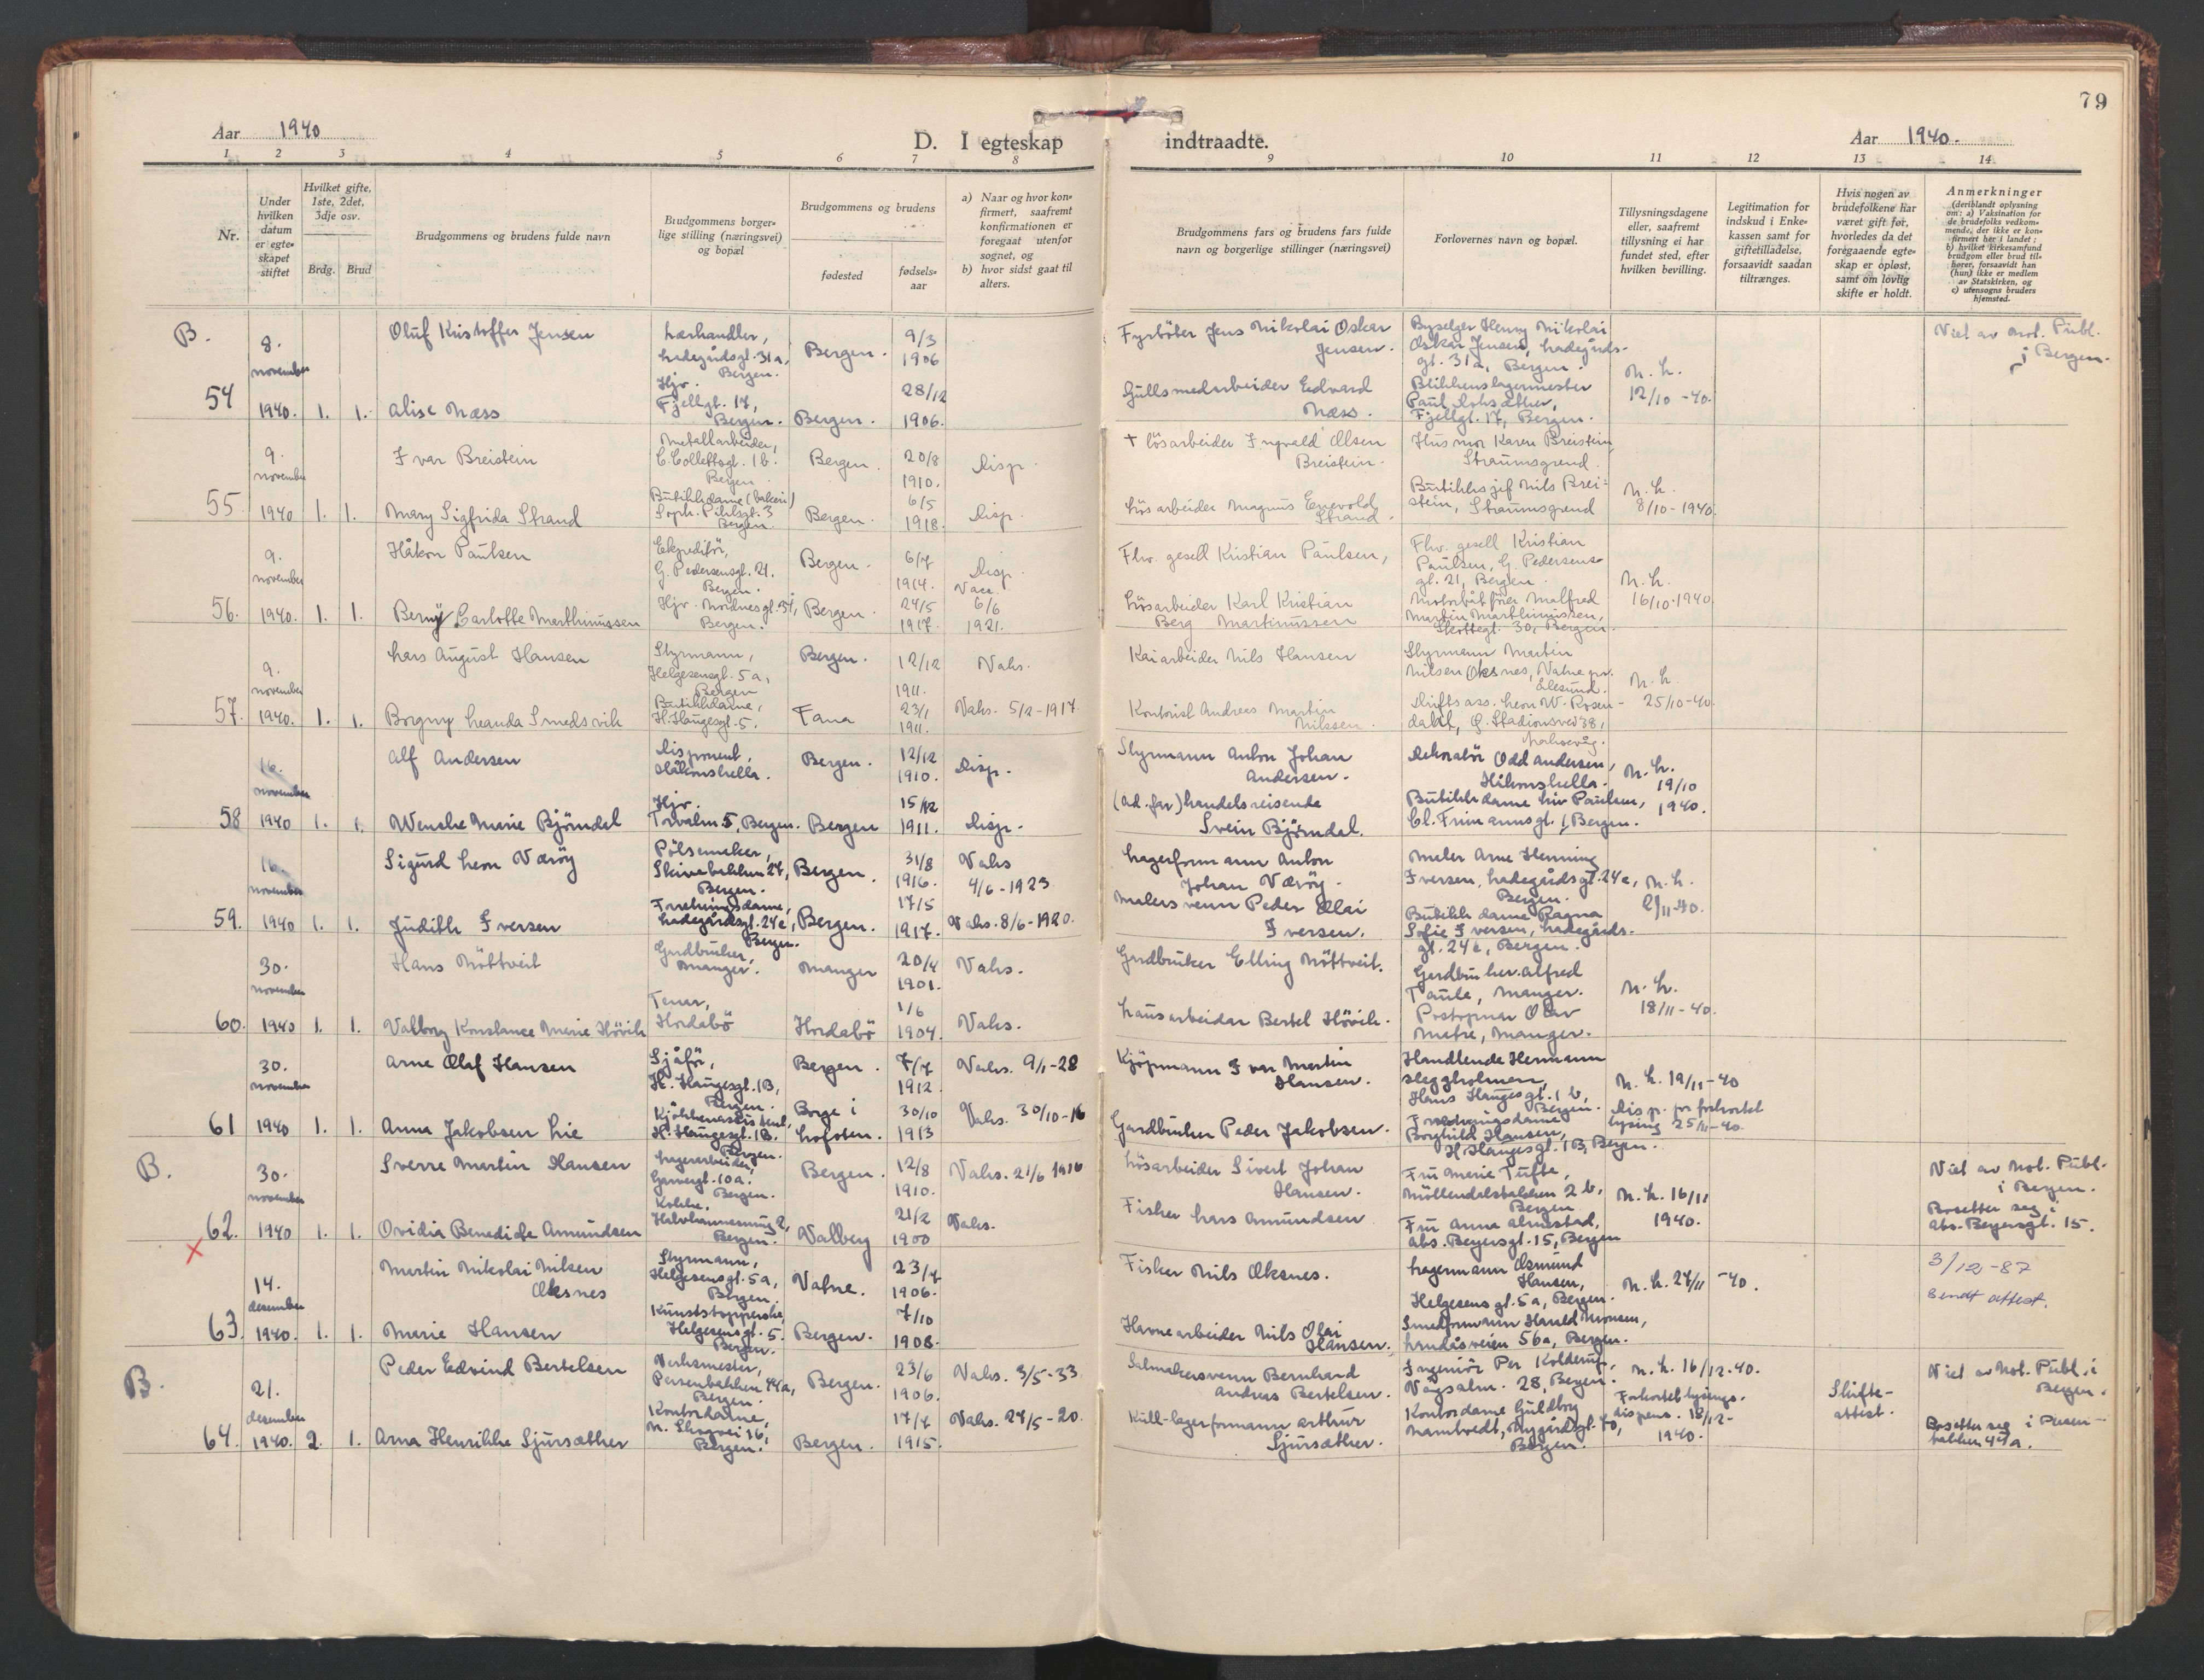 79
Aar 1940
D. I egteskap indtraadte.
Aar 1940.
1 2 3 4 5 6 7 8 9 10 11 12 13 14
Nr.
Under hvilken datum er egteskapet stiftet
Hvilket gifte, 1ste, 2det, 3dje osv.
Brdg. Brud
Brudgommens og brudens fulde navn
Brudgommens borgerlige stilling (næringsvei) og bopæl
Brudgommens og brudens
fødested
fødselsaar
a) Naar og hvor konfirmert, saafremt konfirmationen er foregaat utenfor sognet, og
b) hvor sidst gaat til alters.
Brudgommens fars og brudens fars fulde navn og borgerlige stillinger (næringsvei)
Forlovernes navn og bopæl.
Tillysningsdagene eller, saafremt tillysning ei har fundet sted, efter hvilken bevilling.
Legitimation for indskud i Enkekassen samt for giftetilladelse, forsaavidt saadan tiltrænges.
Hvis nogen av brudefolkene har været gift før, hvorledes da det foregaaende egteskap er opløst, samt om lovlig skifte er holdt.
Anmerkninger
(deriblandt oplysning om: a) Vaksination for de brudefolks vedkommende, der ikke er konfirmert her i landet; b) hvilket kirkesamfund brudgom eller brud tilhører, forsaavidt han (hun) ikke er medlem av Statskirken, og c) utensogns bruders hjemsted.
B.
54
8. november 1940. 1. 1.
Oluf Kristoffer Jensen
Lærhandler, Ladegårdsgt. 31a, Bergen.
Bergen. 9/3 1906
Fyrböter Jens Nikolai Oskar Jensen.
Byselger Henry Nikolai Oskar Jensen, Ladegårdsgt. 31a, Bergen.
N. K. 12/10 -40.
Viet av Not. Publ. i Bergen.
Alise Næss
Hjv. Fjellgt. 17, Bergen.
Bergen. 28/12 1906.
Gullsmedarbeider Edvard Næss.
Blikkenslagermester Paul
Fjellgt. 17, Bergen.
55
9. november 1940 1. 1.
Ivar Breistein
Metallarbeider, C. Collettsgt. 1b. Bergen
Bergen. 20/8 1910. Disp.
+ Lösarbeider Ingvald Olsen Breistein.
Husmor Karen Breistein, Straumsgrend.
N. K. 8/10 - 1940.
Mary Sigfrida Strand
Butikkdame (bakeri) Soph. Pihlsgt. 3 Bergen.
Bergen. 6/5 1918. Disp.
Lösarbeider Magnus Enevold Strand.
Butikksjef Nils Breistein, Straumsgrend
56.
9. november 1940. 1. 1.
Håkon Paulsen
Ekspeditör, G. Pedersensgt. 21. Bergen.
Bergen. 6/7 1914. Disp.
Fhv. gesell Kristian Paulsen,
Fhv. gesell Kristian Paulsen, G. Pedersensgt. 21, Bergen.
N. K. 16/10-1940.
Berny Carlotte Marthinussen
Hjv. Nordnesgt. 34, Bergen.
Bergen. 24/5 1917. Vacc. 6/6 1921.
Lösarbeider Karl Kristian Berg Martinussen
Motorbåtförer Malfred Martin Marthinussen, Skottegt. 30, Bergen.
57.
9. november 1940. 1. 1.
Lars August Hansen
Styrmann, Helgesensgt. 5a, Bergen
Bergen. 12/12 1911. Vaks.
Kaiarbeider Nils Hansen
Styrmann Martin Nilsen Oksnes, Vatne pr. Ålesund.
N. K. 25/10-40.
Borgny Leanda Smedsvik
Butikkdame, H. Haugesgt. 5.
Fana 23/1 1911. Vaks. 5/2-1917.
Kontorist Andreas Martin Nilssen.
Driftsass. Leon W. Rosendahl, Ø. Stadionsvei 38,
58
16. november 1940 1. 1.
Alf Andersen
Disponent, Håkonshella.
Bergen. 12/12 1910. Disp.
Styrmann Anton Johan Andersen.
Dekoratör Odd Andersen, Håkonshella.
N. K. 19/10 1940.
Wenche Marie Bjørndal
Hjv. Torvalm 5, Bergen.
Bergen 15/12 1911. Disp.
(Ad. far) Handelsreisende Svein Björndal.
Butikkdame Liv Paulsen, Cl. Frimannsgt. 1, Bergen.
59.
16. november 1940 1. 1.
Sigurd Leon Væröy
Pölsemaker, Skivebakken 24, Bergen.
Bergen. 31/8 1916. Vaks 4/6-1923
Lagerformann Anton Johan Væröy.
Maler Arne Henning Iversen, Ladegårdsgt. 24e, Bergen.
N. K. 2/11-40.
Judith Iversen
Forretningsdame, Ladegårdsgt. 24e, Bergen.
Bergen. 17/5 1917. Vaks. 8/6-1920.
Malersvenn Peder Olai Iversen.
Butikkdame Ragna Sofie Iversen, Ladegårdsgt. 24e, Bergen.
60.
30. november 1940 1. 1.
Hans Nöttveit
Gardbruker, Manger.
Manger 20/4 1901. Vaks.
Gardbruker Elling Nöttveit.
Gardbruker Alfred Taule, Manger.
N. K. 18/11-40.
Valborg Konstance Marie Hövik
Tenar, Hordabö
Hordabö 1/6 1904. Vaks.
Hausarbeidar Bertel Hövik.
Postopnar Olav Matre, Manger.
61
30. november 1940 1. 1.
Arne Olaf Hansen
Sjåför, H. Haugesgt. 1B, Bergen.
Bergen. 7/7 1912. Vaks. 9/1-28
Kjöpmann Ivar Martin Hansen.
Handlende Hermann Sleggholmen, Hans Haugesgt. 1b, Bergen.
N. K. 19/11-40
Disp. for forkortet lysing 25/11-40.
Anna Jakobsen Lie
Kjökkenassistent, H. Haugesgt. 1B. Bergen.
Borge i Lofoten. 30/10 1913 Vaks. 30/10-16
Gardbruker Peder Jakobsen.
Forretningsdame Borghild Hansen, H. Haugesgt. 1B, Bergen.
B.
62.
30. november 1940 1. 1.
Sverre Martin Hansen
Lagerarbeider, Garvergt. 10a. Bergen.
Bergen. 12/8 1910. Vaks. 21/6 1916
Lösarbeider Sivert Johan Hansen.
Fru Marie Tufte, Möllendalsbakken 2b, Bergen
N. K. 16/11 1940.
Viet av Not. Publ. i Bergen.
Bosetter seg i Abs. Beyersgt. 15.
Ovidia Benedicte Amundsen
Kokke, Bergen.
Valberg 21/2 1900 Vaks.
Fisker Lars Amundsen
Fru Anna Almestad, Abs. Beyersgt. 15, Bergen
x
63.
14. desember 1940. 1. 1.
Martin Nikolai Nilsen Oksnes
Styrmann, Helgesensgt. 5a, Bergen.
Vatne. 23/7 1906.
Fisker Nils Oksnes.
Lagermann Osmund Hansen, Helgesensgt. 5a, Bergen.
N. K. 27/11 -40.
3/12-87
Sendt attest.
Marie Hansen
Kunststopperske, Helgesensgt. 5. Bergen.
Bergen. 7/10 1908.
Havnearbeider Nils Olai Hansen.
Smedformann Harald Monsen, Landåsveien 56a, Bergen.
B.
64.
21. desember 1940. 2. 1.
Peder Eidvind Bertelsen
Verksmester, Persenbakken 44a, Bergen.
Bergen. 23/6 1906. Vaks. 3/5-33
Salmakersvenn Bernhard Andreas Bertelsen.
Ingeniör Per Kolderup, Vågsalm. 28, Bergen.
N. K. 16/12-40.
Forkortet lysings-dispens. 18/12-1940.
Skifteattest.
Viet av Not. Publ. i Bergen.
Bosetter seg i Persenbakken 44a.
Arna Henrikke Sjursæther
Kontordame, N. Skogvei 16, Bergen.
Bergen. 17/7 1915. Vaks. 27/5-20.
Kull-lagerformann Arthur Sjursæther.
Kontordame Guldborg Namtvedt, Nygårdsgt. 70, Bergen.